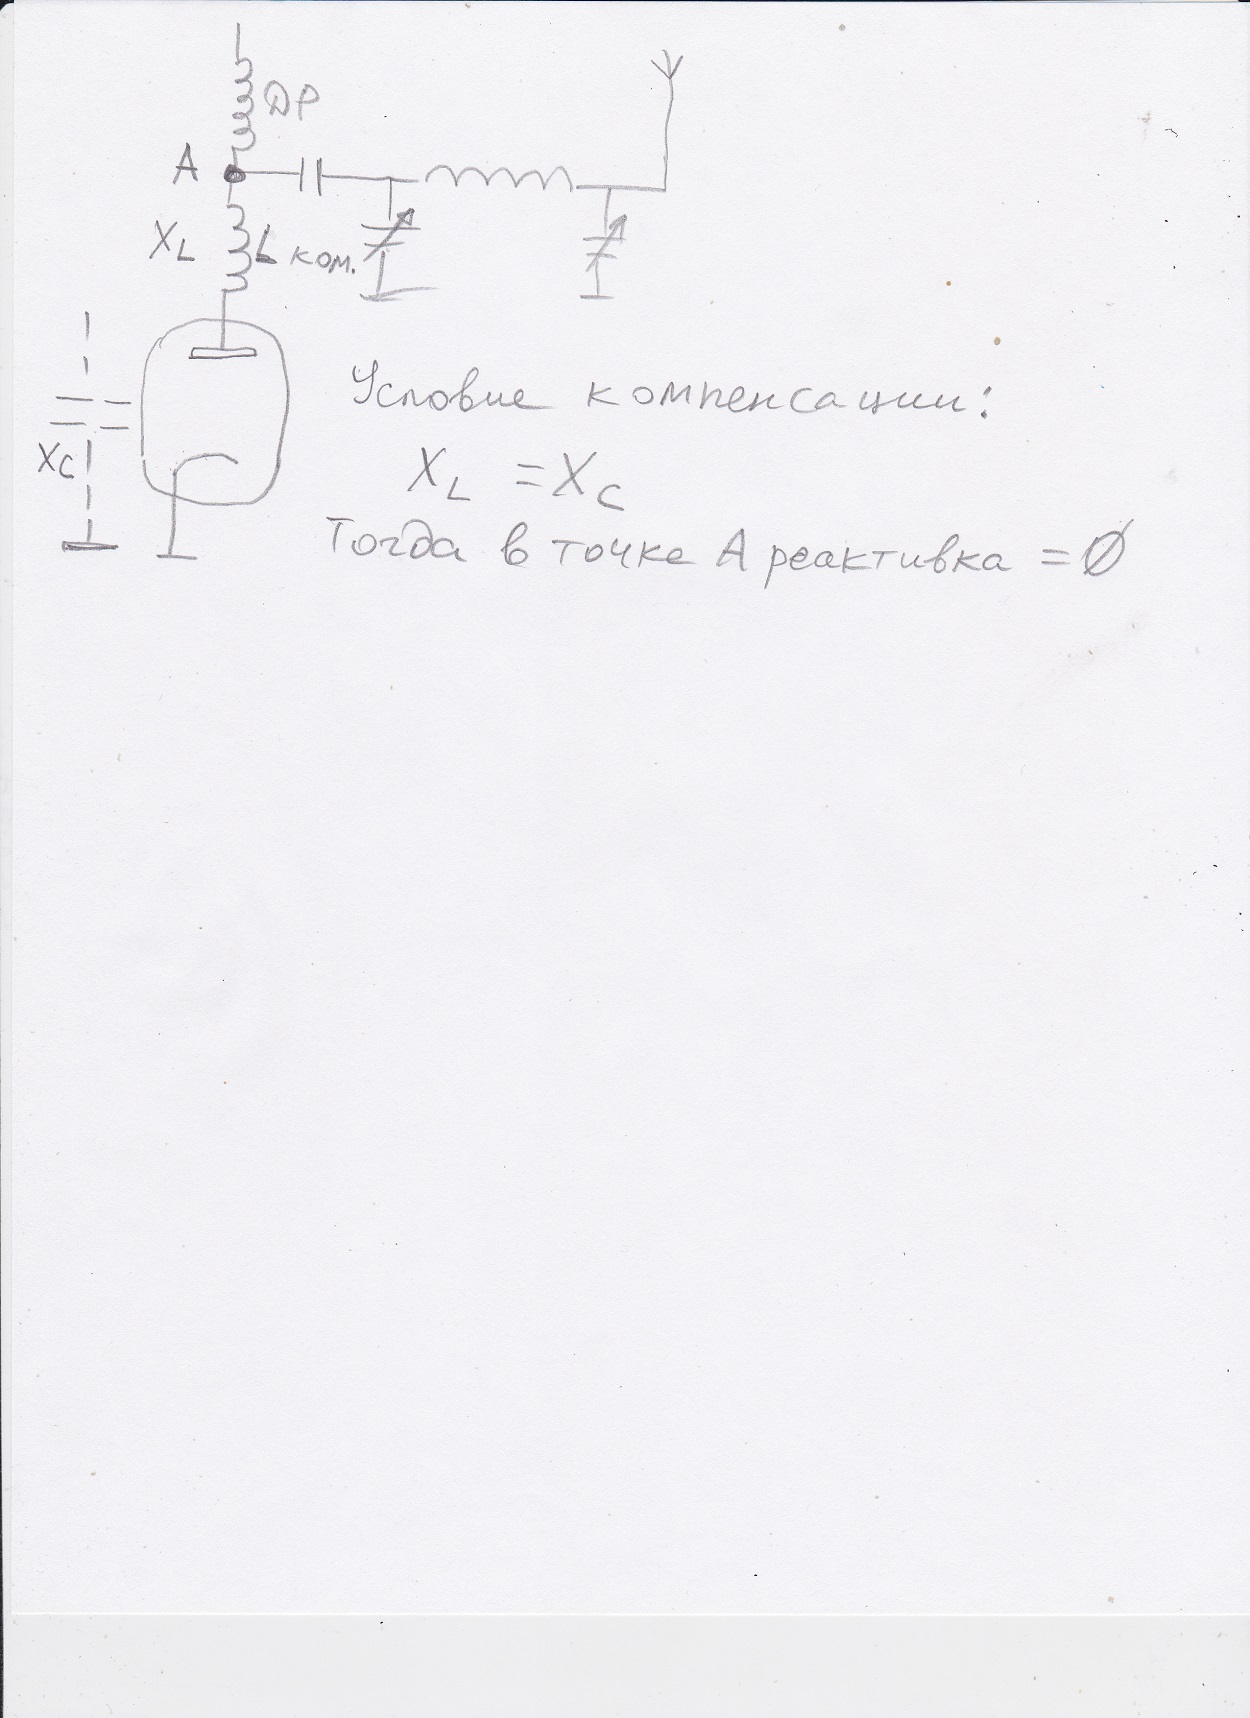 ДР
А
XL
L ком.
Условие компенсации:
Xс
XL = XC
Тогда в точке А реактивка = 0